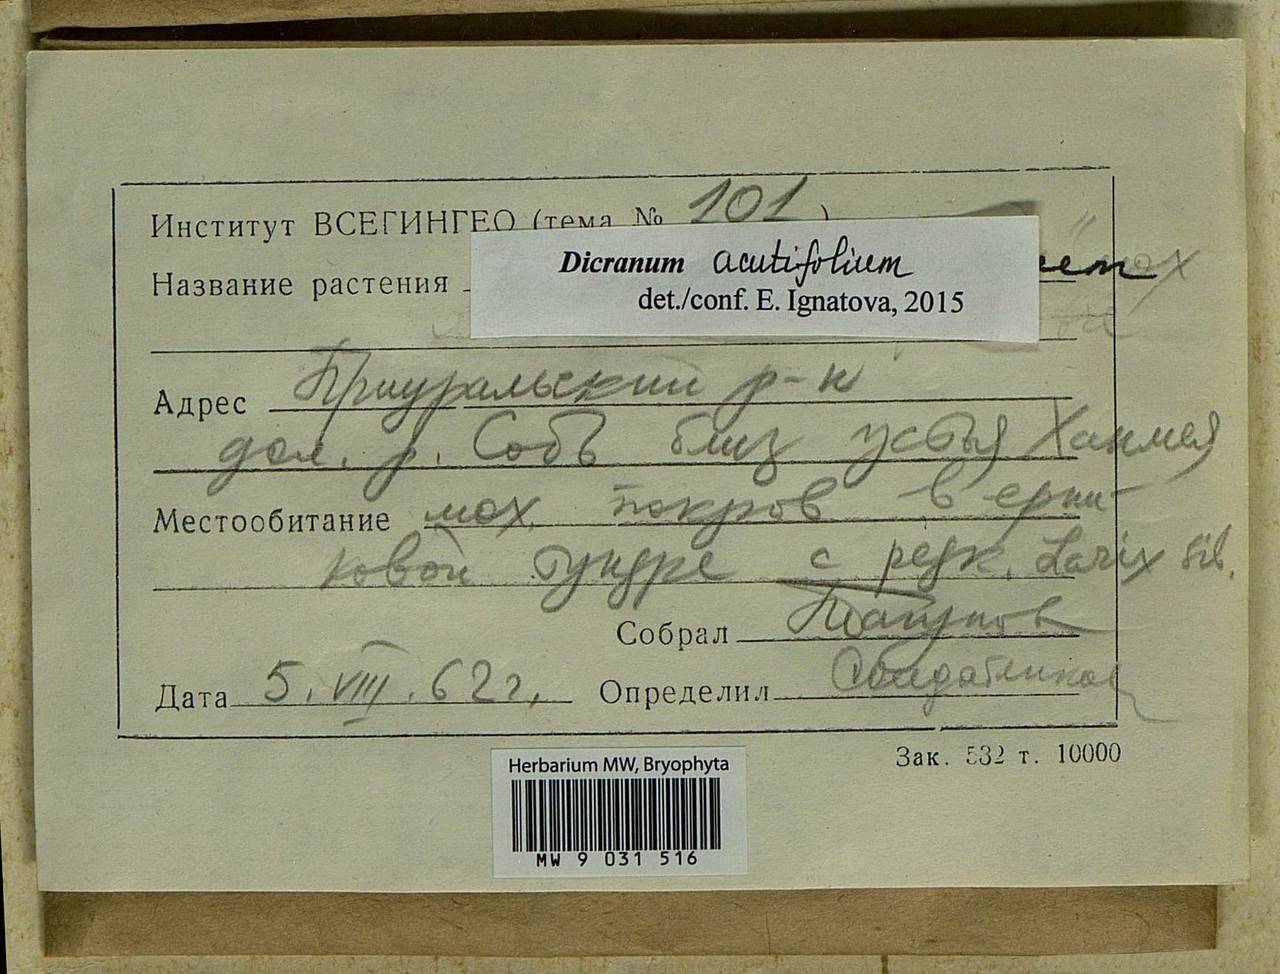 Институт ВСЕГИНГЕО (тема № 101)
Dicranum acutifolium
Название растения
det./conf. E. Ignatova, 2015
Адрес Приуральский р-н
дол. р. Собь близ устья Ханмея
Местообитание мох. покров в ерни-
ковой тундре с редк. Larix sib.
Собрал
Дата 5.VIII.62г. Определил
Зак. 532 т. 10000
Herbarium MW, Bryophyta
MW 9 031 516